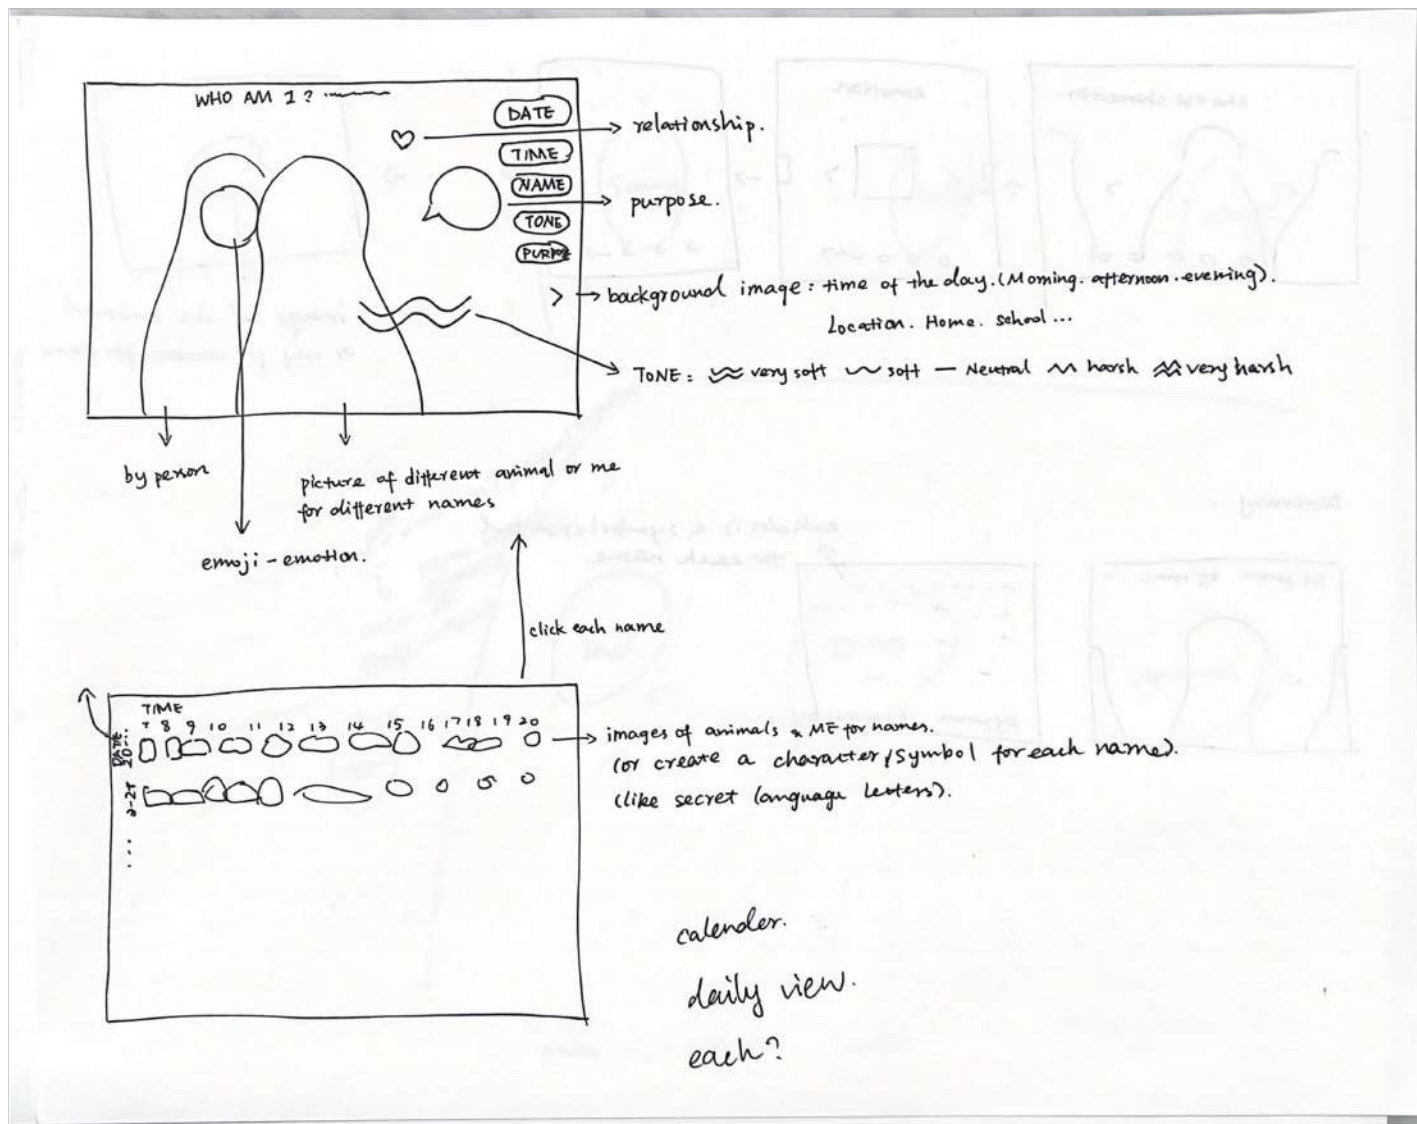 WHO AM I?
DATE
TIME
NAME
TONE
PURPOSE
relationship.
purpose.
background image : time of the day. (Morning. afternoon. evening).
Location. Home. school...
TONE : very soft soft Neutral harsh very harsh
by person
picture of different animal or me
for different names
emoji - emotion.
click each name
TIME
7 8 9 10 11 12 13 14 15 16 17 18 19 20
DATE
images of animals & ME for names.
(or create a character/symbol for each name).
(like secret language letters).
calender.
daily view.
each?